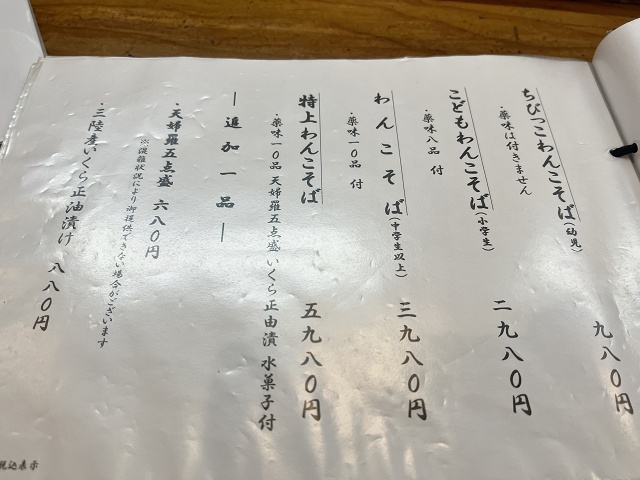 ちびっこわんこそば(幼児) 九八〇円
・薬味は付きません
こどもわんこそば(小学生) 二九八〇円
・薬味八品 付
わんこそば(中学生以上) 三九八〇円
・薬味一〇品 付
特上わんこそば 五九八〇円
・薬味一〇品 天婦羅五点盛 いくら正由漬 水菓子付
― 追加一品 ―
・天婦羅五点盛 六八〇円
※混雑状況により御提供できない場合がございます
・三陸産いくら正油漬け 八八〇円
税込表示